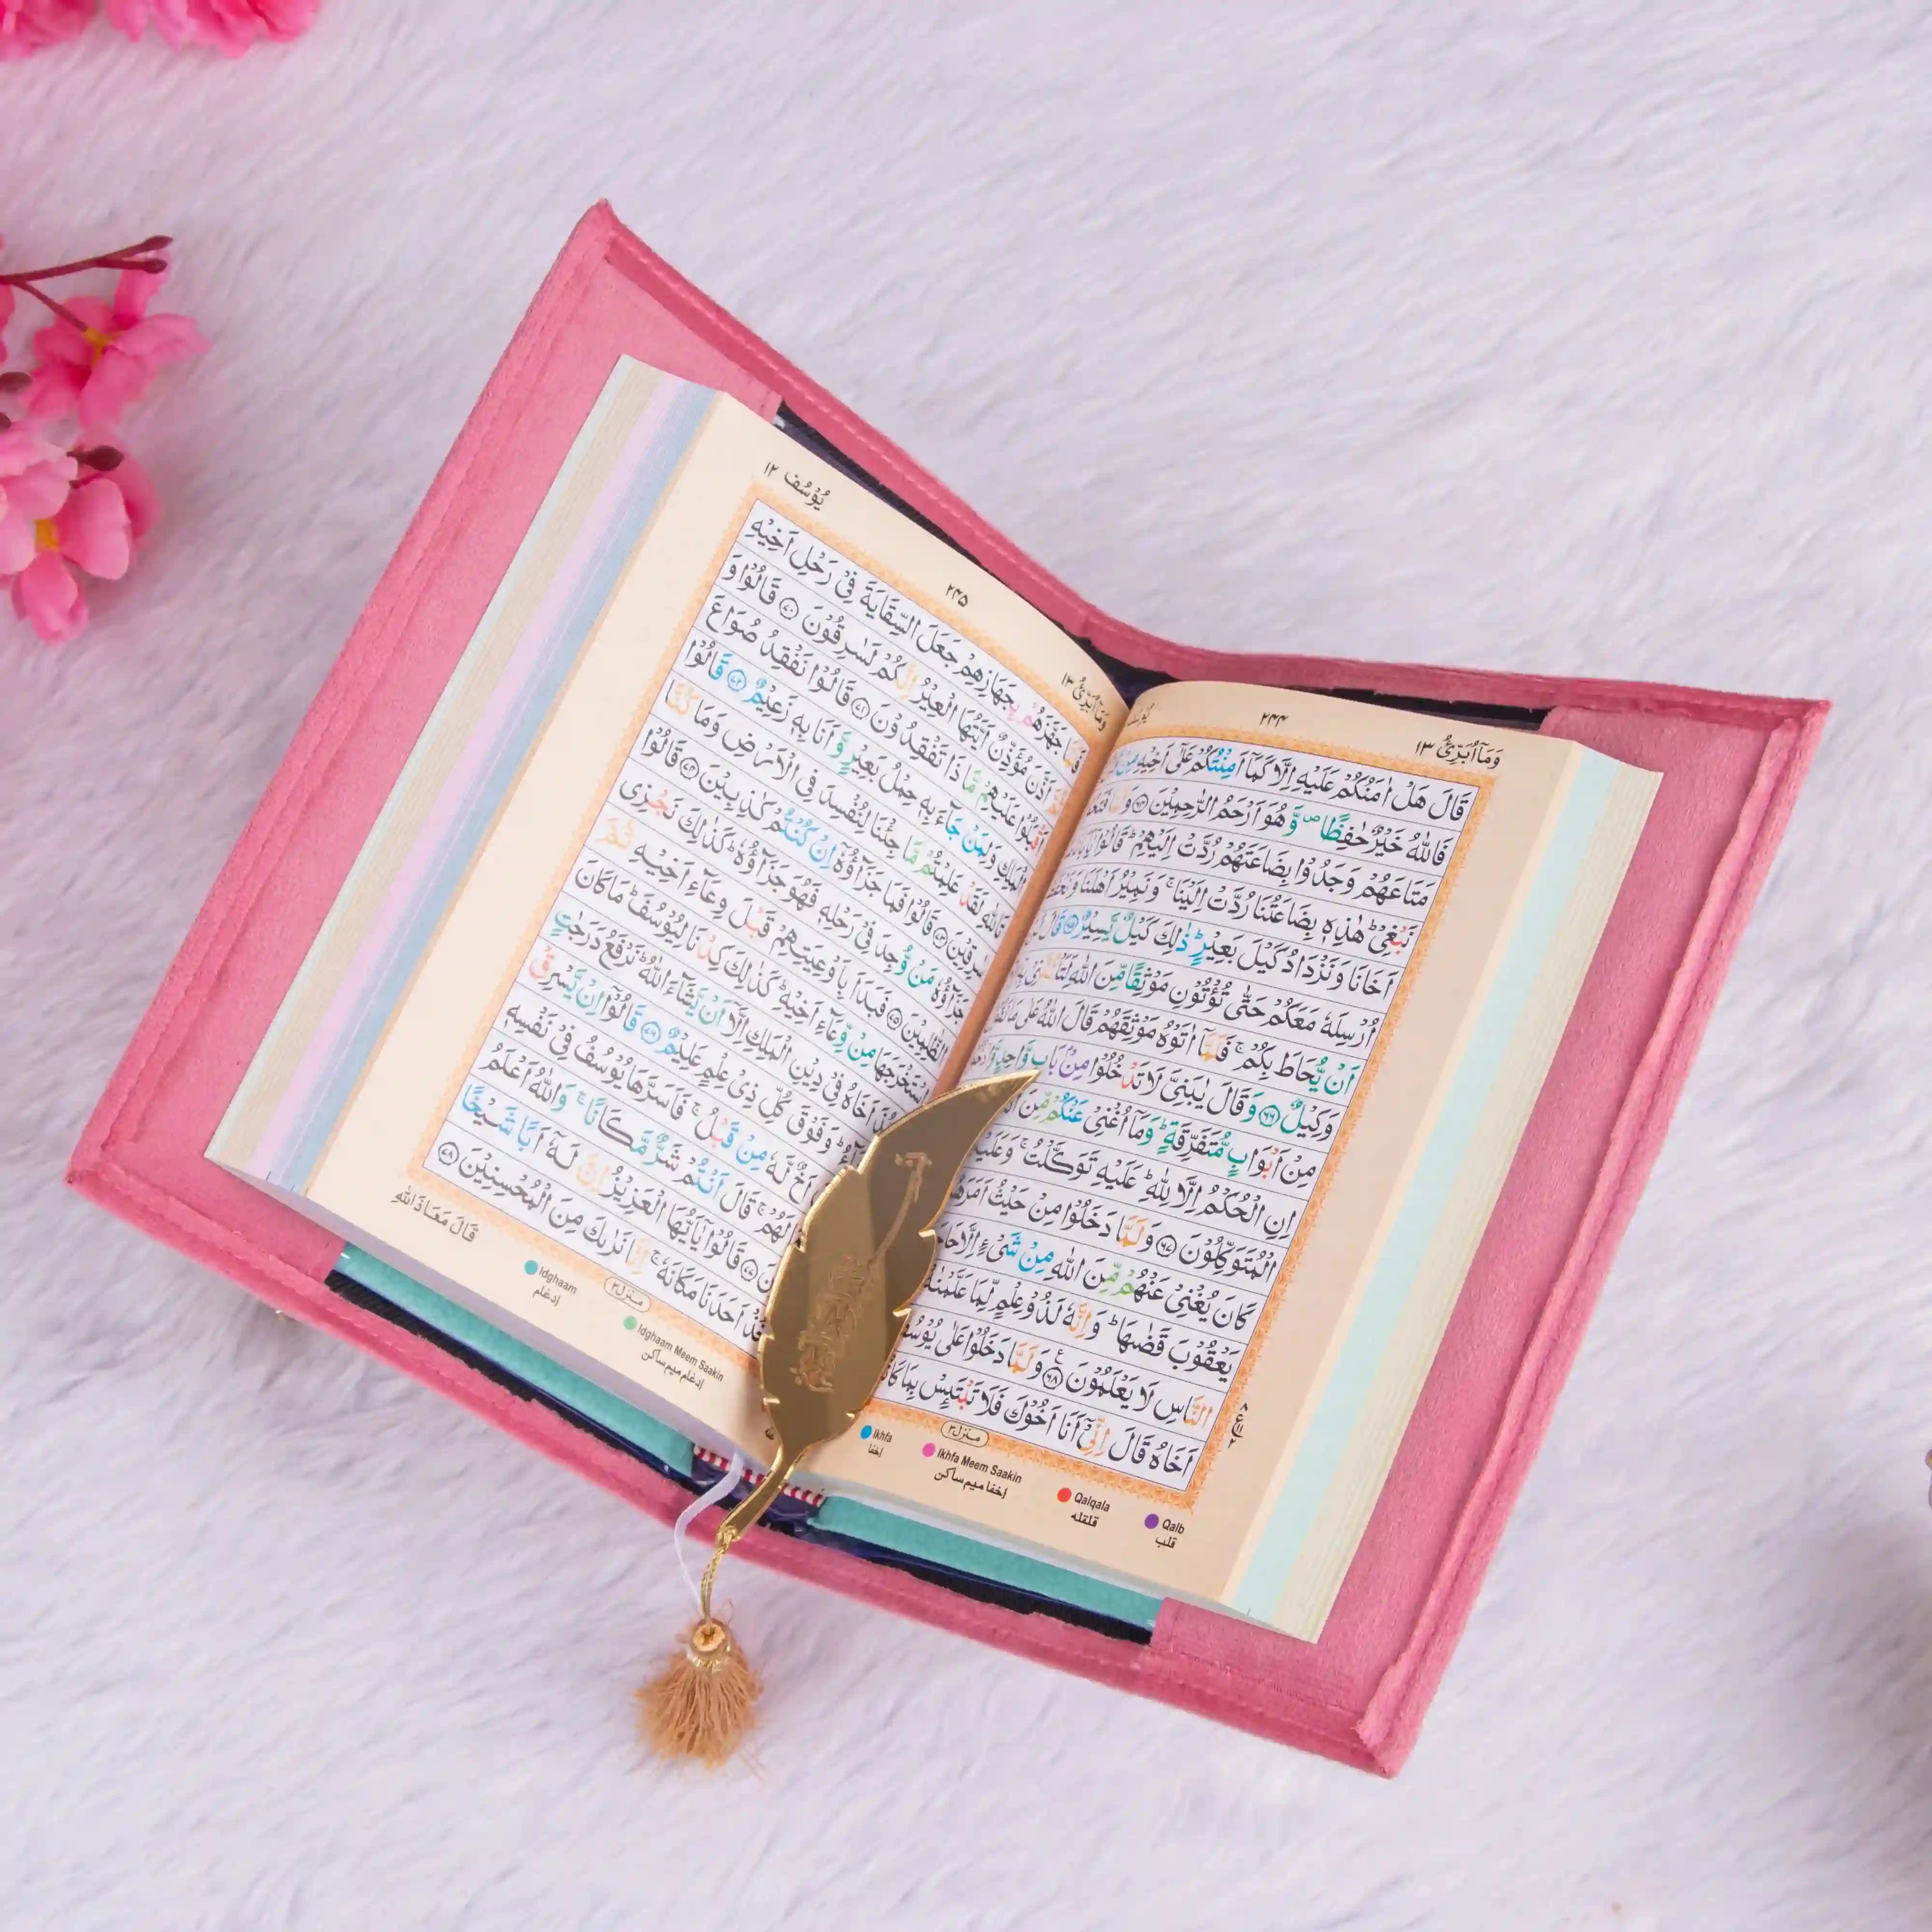 وَمَآ اُبَرِّئُ ١٣
٢٤٤
قَالَ هَلْ اٰمَنُكُمْ عَلَيْهِ اِلَّا كَمَآ اَمِنْتُكُمْ عَلٰٓى اَخِيْهِ مِنْ
فَاللّٰهُ خَيْرٌ حٰفِظًا ص وَّهُوَ اَرْحَمُ الرّٰحِمِيْنَ ﴿٦٤﴾
مَتَاعَهُمْ وَجَدُوْا بِضَاعَتَهُمْ رُدَّتْ اِلَيْهِمْ ؕ قَالُوْا
نَبْغِيْ ؕ هٰذِهٖ بِضَاعَتُنَا رُدَّتْ اِلَيْنَا ۚ وَنَمِيْرُ اَهْلَنَا
اَخَانَا وَنَزْدَادُ كَيْلَ بَعِيْرٍ ؕ ذٰلِكَ كَيْلٌ يَّسِيْرٌ ﴿٦٥﴾ قَالَ
اُرْسِلَهٗ مَعَكُمْ حَتّٰى تُؤْتُوْنِ مَوْثِقًا مِّنَ اللّٰهِ
اَنْ يُّحَاطَ بِكُمْ ۚ فَلَمَّآ اٰتَوْهُ مَوْثِقَهُمْ قَالَ اللّٰهُ عَلٰى مَا
وَكِيْلٌ ﴿٦٦﴾ وَقَالَ يٰبَنِيَّ لَا تَدْخُلُوْا مِنْۢ بَابٍ وَّاحِدٍ
مِنْ اَبْوَابٍ مُّتَفَرِّقَةٍ ؕ وَمَآ اُغْنِيْ عَنْكُمْ مِّنَ
اِنِ الْحُكْمُ اِلَّا لِلّٰهِ ؕ عَلَيْهِ تَوَكَّلْتُ ۚ
الْمُتَوَكِّلُوْنَ ﴿٦٧﴾ وَلَمَّا دَخَلُوْا مِنْ حَيْثُ
كَانَ يُغْنِيْ عَنْهُمْ مِّنَ اللّٰهِ مِنْ شَيْءٍ اِلَّا
يَعْقُوْبَ قَضٰىهَا ؕ وَاِنَّهٗ لَذُوْ عِلْمٍ لِّمَا عَلَّمْنٰهُ
النَّاسِ لَا يَعْلَمُوْنَ ﴿٦٨﴾ وَلَمَّا دَخَلُوْا عَلٰى
اَخَاهُ قَالَ اِنِّيْٓ اَنَا اَخُوْكَ فَلَا تَبْتَئِسْ بِمَا
منزل ٣
Ikhfa
اِخفا
Ikhfa Meem Saakin
اِخفا میم ساکن
Qalqala
قلقله
Qalb
قلب
يُوْسُف ١٢
٢٤٥
وَمَآ اُبَرِّئُ ١٣
جَهَّزَهُمْ بِجَهَازِهِمْ جَعَلَ السِّقَايَةَ فِيْ رَحْلِ اَخِيْهِ
اَذَّنَ مُؤَذِّنٌ اَيَّتُهَا الْعِيْرُ اِنَّكُمْ لَسٰرِقُوْنَ ﴿٧٠﴾ قَالُوْا وَ
اَقْبَلُوْا عَلَيْهِمْ مَّا ذَا تَفْقِدُوْنَ ﴿٧١﴾ قَالُوْا نَفْقِدُ صُوَاعَ
الْمَلِكِ وَلِمَنْ جَآءَ بِهٖ حِمْلُ بَعِيْرٍ وَّاَنَا بِهٖ زَعِيْمٌ ﴿٧٢﴾ قَالُوْا
تَاللّٰهِ لَقَدْ عَلِمْتُمْ مَّا جِئْنَا لِنُفْسِدَ فِي الْاَرْضِ وَمَا كُنَّا
سٰرِقِيْنَ ﴿٧٣﴾ قَالُوْا فَمَا جَزَآؤُهٗٓ اِنْ كُنْتُمْ كٰذِبِيْنَ ﴿٧٤﴾ قَالُوْا
جَزَآؤُهٗ مَنْ وُّجِدَ فِيْ رَحْلِهٖ فَهُوَ جَزَآؤُهٗ ؕ كَذٰلِكَ نَجْزِي
الظّٰلِمِيْنَ ﴿٧٥﴾ فَبَدَاَ بِاَوْعِيَتِهِمْ قَبْلَ وِعَآءِ اَخِيْهِ ثُمَّ
اسْتَخْرَجَهَا مِنْ وِّعَآءِ اَخِيْهِ ؕ كَذٰلِكَ كِدْنَا لِيُوْسُفَ ؕ مَا كَانَ
اَخَاهُ فِيْ دِيْنِ الْمَلِكِ اِلَّآ اَنْ يَّشَآءَ اللّٰهُ ؕ نَرْفَعُ دَرَجٰتٍ
وَفَوْقَ كُلِّ ذِيْ عِلْمٍ عَلِيْمٌ ﴿٧٦﴾ قَالُوْٓا اِنْ يَّسْرِقْ
اَخٌ لَّهٗ مِنْ قَبْلُ ۚ فَاَسَرَّهَا يُوْسُفُ فِيْ نَفْسِهٖ
لَهُمْ ۚ قَالَ اَنْتُمْ شَرٌّ مَّكَانًا ۚ وَاللّٰهُ اَعْلَمُ
﴿٧٧﴾ قَالُوْا يٰٓاَيُّهَا الْعَزِيْزُ اِنَّ لَهٗٓ اَبًا شَيْخًا
اَحَدَنَا مَكَانَهٗ ۚ اِنَّا نَرٰىكَ مِنَ الْمُحْسِنِيْنَ ﴿٧٨﴾
قَالَ مَعَاذَ اللّٰهِ
منزل ٣
Idghaam
اِدغام
Idghaam Meem Saakin
اِدغام میم ساکن